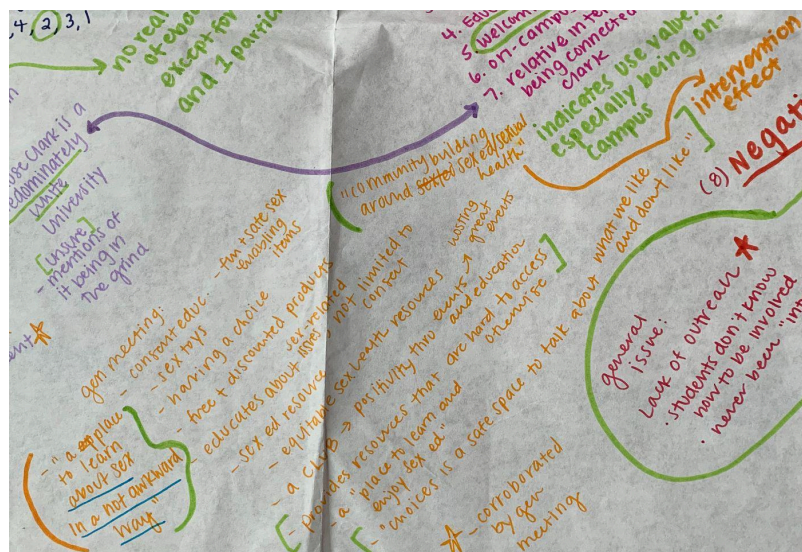 ,4, 2, 3, 1
no real
except for
and 1
4.
5. welcom
6. on-campu
7. relative in te
being connected
Clark
indicates use value,
especially being on-
campus
intervention
effect
(8) Negati
use Clark is a
edominately
white
university
[unsure]
- mentions of
it being in
the grind
"community building
around sexed/sexual
health"
gen meeting:
- consent educ.
- sex toys
- having a choice
- free + discounted products
- educates about sex-related issues, not limited to consent
- fun + safe sex
enabling
items
- sex ed resource
- equitable sex/health resources
- a club → positivity thro events → hosting great events
- provides resources that are hard to access
and education
otherwise
- a "place to learn and
enjoy sex ed"
- "choices is a safe space to talk about what we like
and don't like"
- "a place
to learn
about sex
in a not awkward
way"
- corroborated
by gen
meeting
general
issue:
Lack of outreach
· students don't know
how to be involved
· never been "int